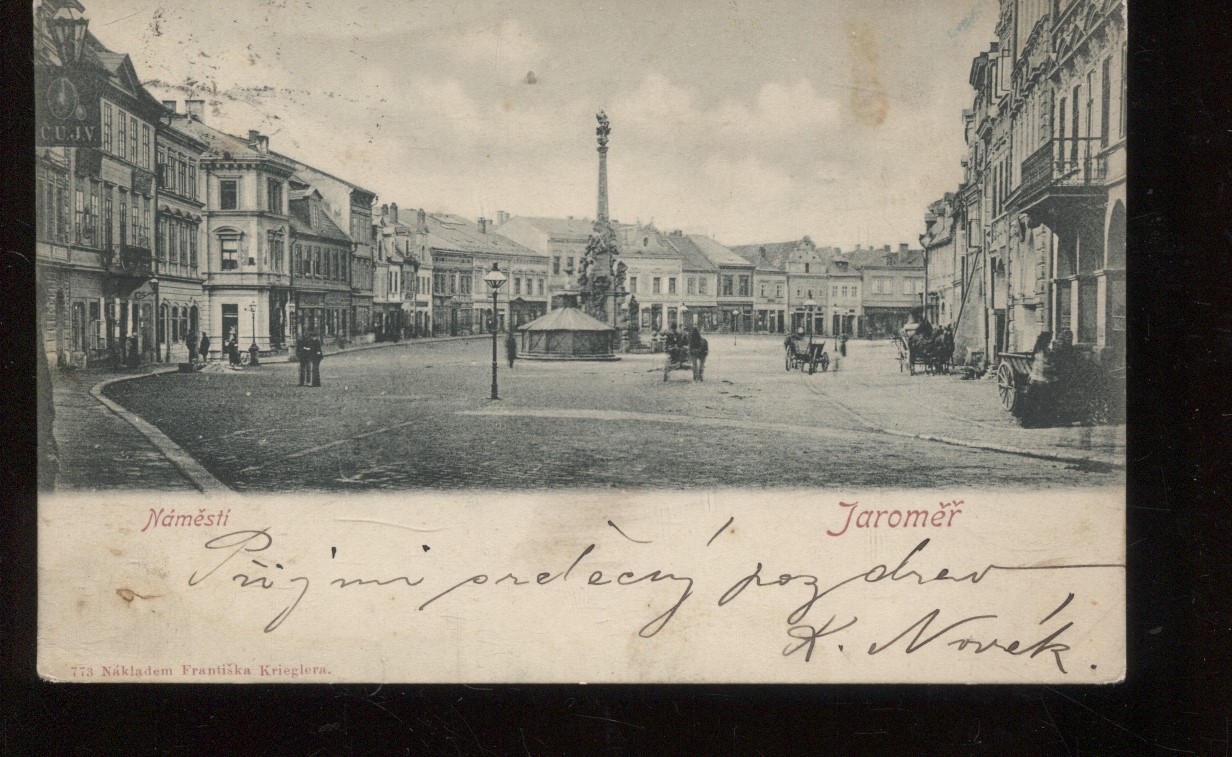 Č.Ú.J.V
Náměstí
Jaroměř
Přijmi srdečný pozdrav
K. Novák.
773 Nákladem Františka Krieglera.